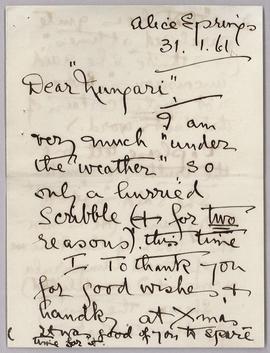 Alice Springs
31.1.61.
Dear "Nungari",
I am
very much "under
the "weather" so
only a hurried
Scribble (+ for two
reasons), this time
I To thank you
for good wishes, +
handks at Xmas,
It was good of you to spare
time for it.